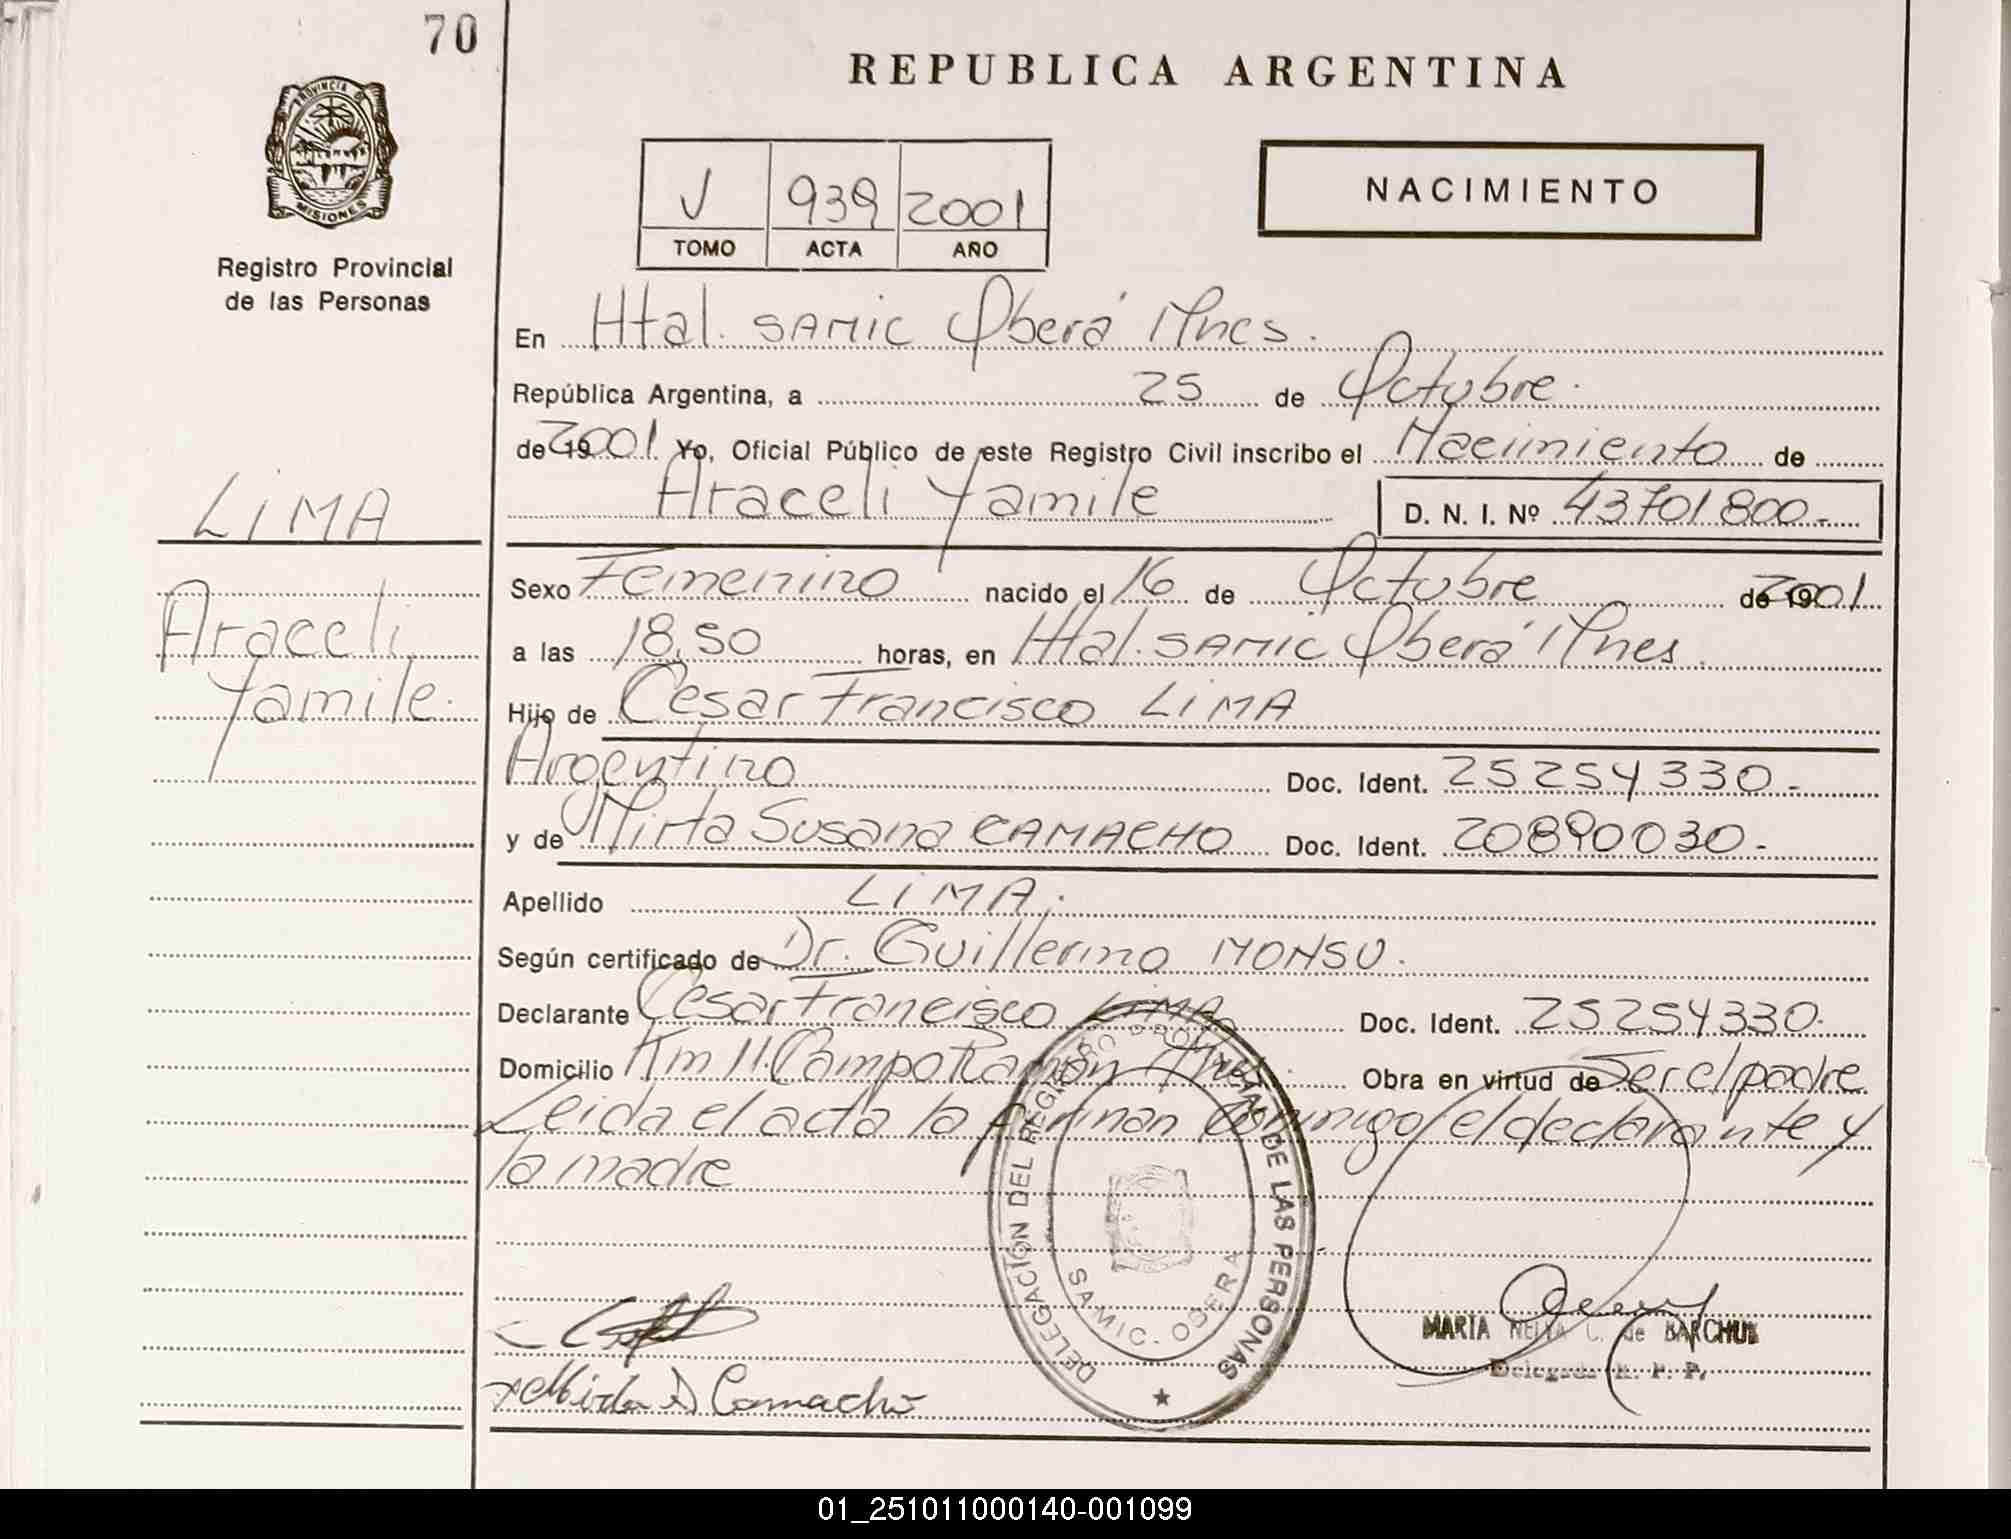 70
REPUBLICA ARGENTINA
PROVINCIA DE
MISIONES
Registro Provincial
de las Personas
J 939 2001
TOMO ACTA AÑO
NACIMIENTO
En Htal. SAMIC Oberá Mnes.
República Argentina, a 25 de Octubre.
de 2001 Yo, Oficial Público de este Registro Civil inscribo el Nacimiento de
Araceli Yamile D. N. I. Nº 43701800.-
LIMA
Araceli
Yamile.
Sexo Femenino nacido el 16 de Octubre de 2001
a las 18,50 horas, en Htal. SAMIC Oberá Mnes.
Hijo de Cesar Francisco LIMA
Argentino Doc. Ident. 25254330.-
y de Mirta Susana CAMACHO Doc. Ident. 20890030.-
Apellido LIMA.
Según certificado de Dr. Guillermo MONSU.
Declarante Cesar Francisco LIMA Doc. Ident. 25254330.
Domicilio Km 11. Campo Ramón Mnes. Obra en virtud de Ser el padre
Leida el acta la firman conmigo el declarante y
la madre
DELEGACIÓN DEL REGISTRO PROVINCIAL DE LAS PERSONAS
SAMIC. OBERA
MARIA NELIA C. de BARCHUK
Delegada R. P. P.
Camacho
01_251011000140-001099